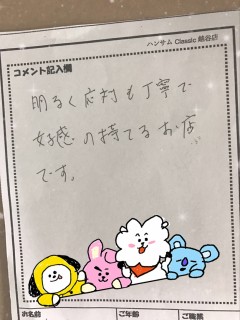 ハンサム Classic 越谷店
コメント記入欄
明るく応対も丁寧で
好感の持てるお店
です。
お名前
ご年齢
ご職業